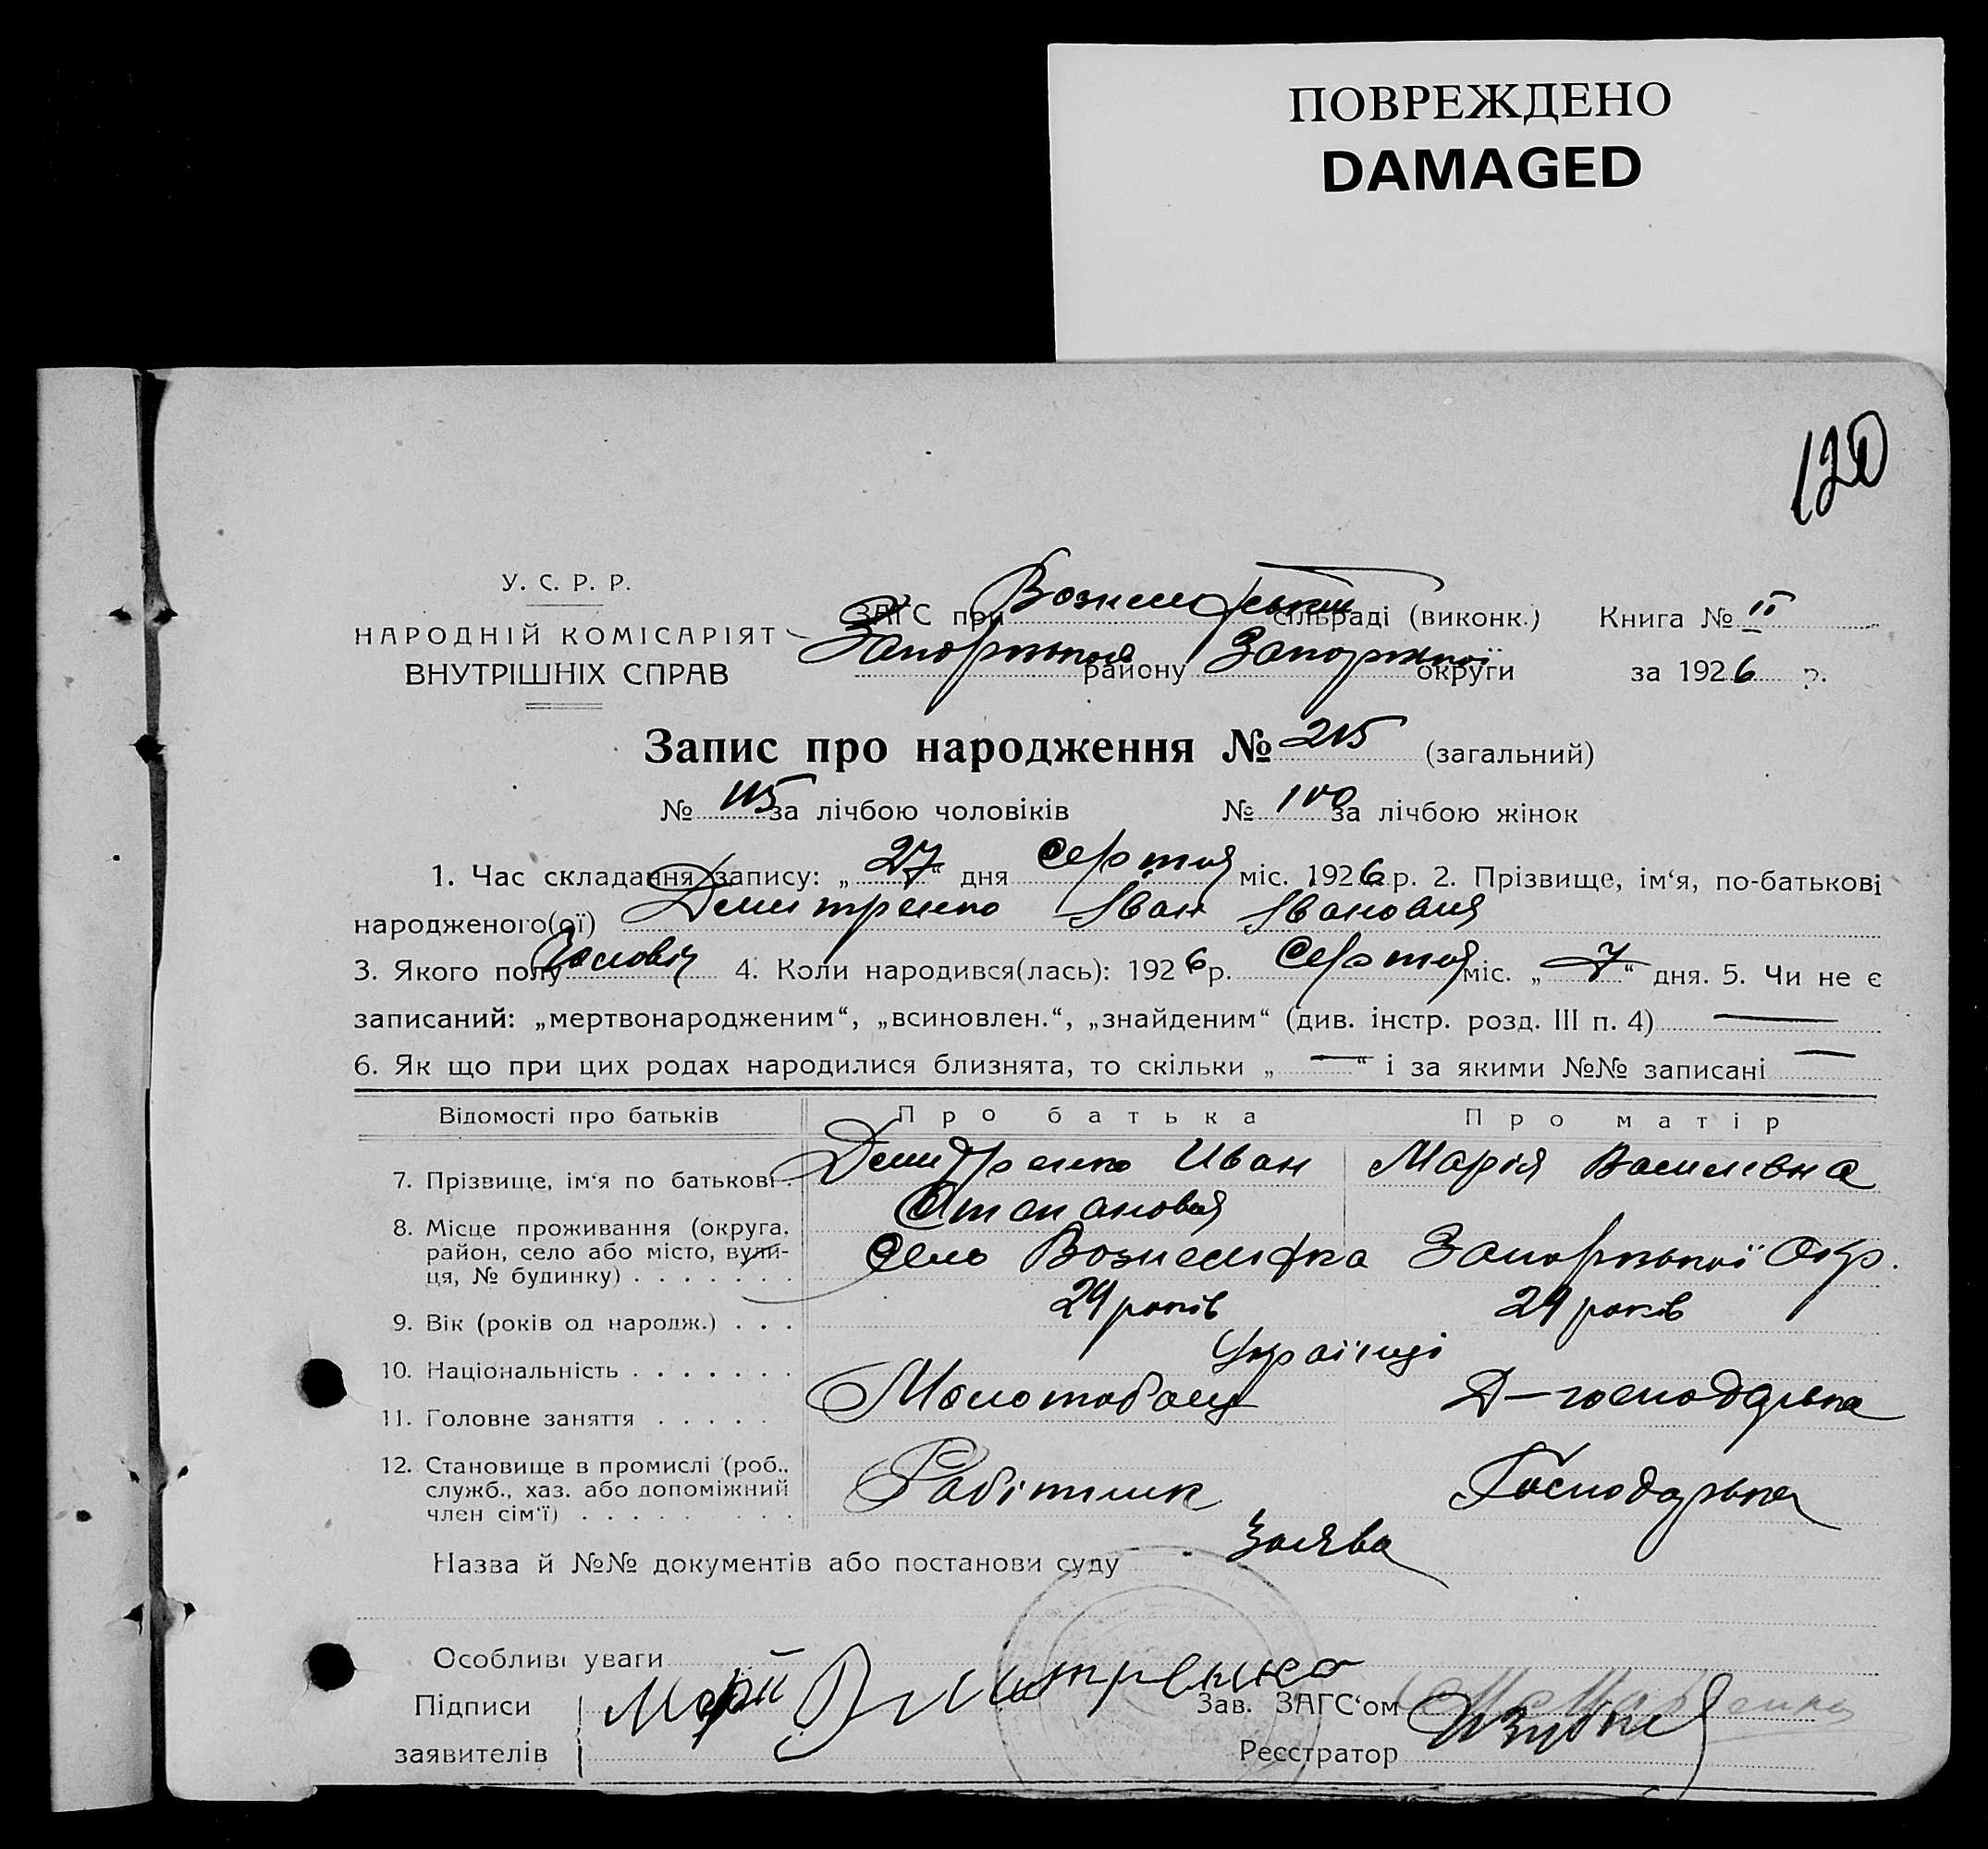 ПОВРЕЖДЕНО
DAMAGED
120
У. С. Р. Р.
НАРОДНІЙ КОМІСАРІЯТ
ВНУТРІШНІХ СПРАВ
ЗАГС при Вознесенській сільраді (виконк.) Книга № II
Запорізького району Запорізької округи за 1926 р.
Запис про народження № 215 (загальний)
№ 115 за лічбою чоловіків № 100 за лічбою жінок
1. Час складання запису: „27“ дня Серпня міс. 1926 р. 2. Прізвище, ім‘я, по-батькові
народженого(ої) Дмитренко Іван Іванович
3. Якого полу Чоловіч 4. Коли народився(лась): 1926 р. Серпня міс. „7“ дня. 5. Чи не є
записаний: „мертвонародженим“, „всиновлен.“, „знайденим“ (див. інстр. розд. III п. 4) —
6. Як що при цих родах народилися близнята, то скільки „ — “ і за якими №№ записані —
Відомості про батьків Про батька Про матір
7. Прізвище, ім‘я по батькові . Дмитренко Иван Степанович Марія Василівна
8. Місце проживання (округа, район, село або місто, вулиця, № будинку) . . . . . . . Село Вознесенка Запорізької Окр.
9. Вік (років од народж.) . . . 24 років 24 років
10. Національність . . . . . . . Українці
11. Головне заняття . . . . . Молотобоец Д-господарька
12. Становище в промислі (роб., служб., хаз. або допоміжний член сім‘ї) . . . . . . . . Робітник Господарька
Назва й №№ документів або постанови суду Заява
Особливі уваги
Підписи Марії Дмитренко Зав. ЗАГС‘ом
заявителів Реєстратор